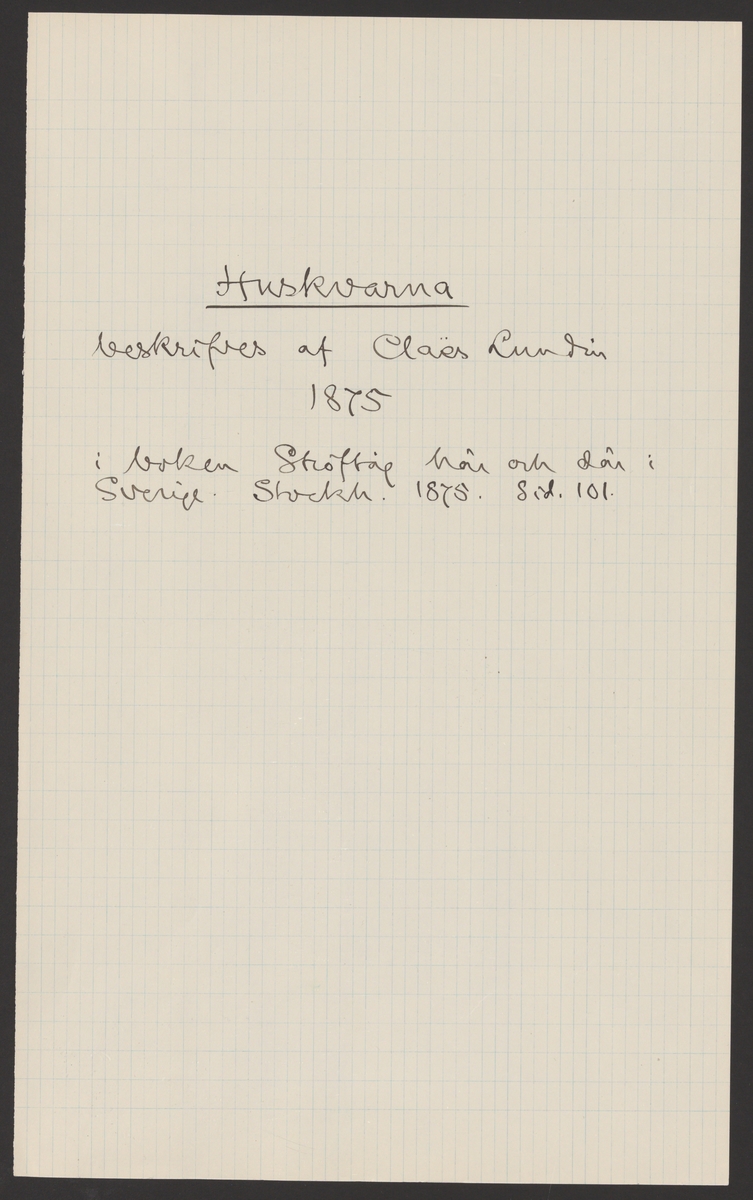 Huskvarna
beskrifves af Claës Lundin
1875
i boken Ströftåg här och där i
Sverige. Stockh. 1875. Sid. 101.